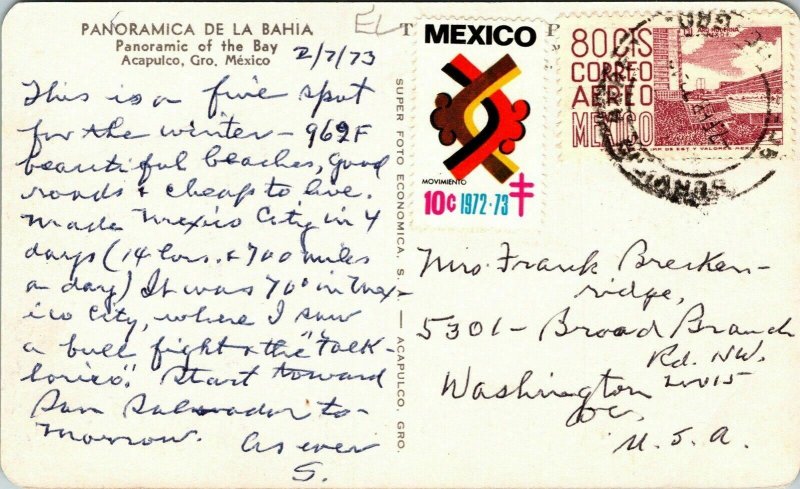 PANORAMICA DE LA BAHIA
Panoramic of the Bay
Acapulco, Gro. México
2/7/73
This is a fine spot
for the winter - 96°F
beautiful beaches, good
roads & cheap to live.
Made Mexico City in 4
days (14 hrs. & 700 miles
a day) It was 70° in Mex-
ico City, where I saw
a bull fight & the "Folk-
lorico". Start toward
San Salvador to-
morrow.
As ever
S.
SUPER FOTO ECONOMICA, S. A. — ACAPULCO, GRO.
EL
T P
MEXICO
MOVIMIENTO
10¢ 1972-73
80 CTS
CORREO
AEREO
MEXICO
ARQ. MODERNA
Mrs. Frank Brecken-
ridge,
5301 - Broad Branch
Rd. NW.
Washington 20015
DC,
U.S.A.